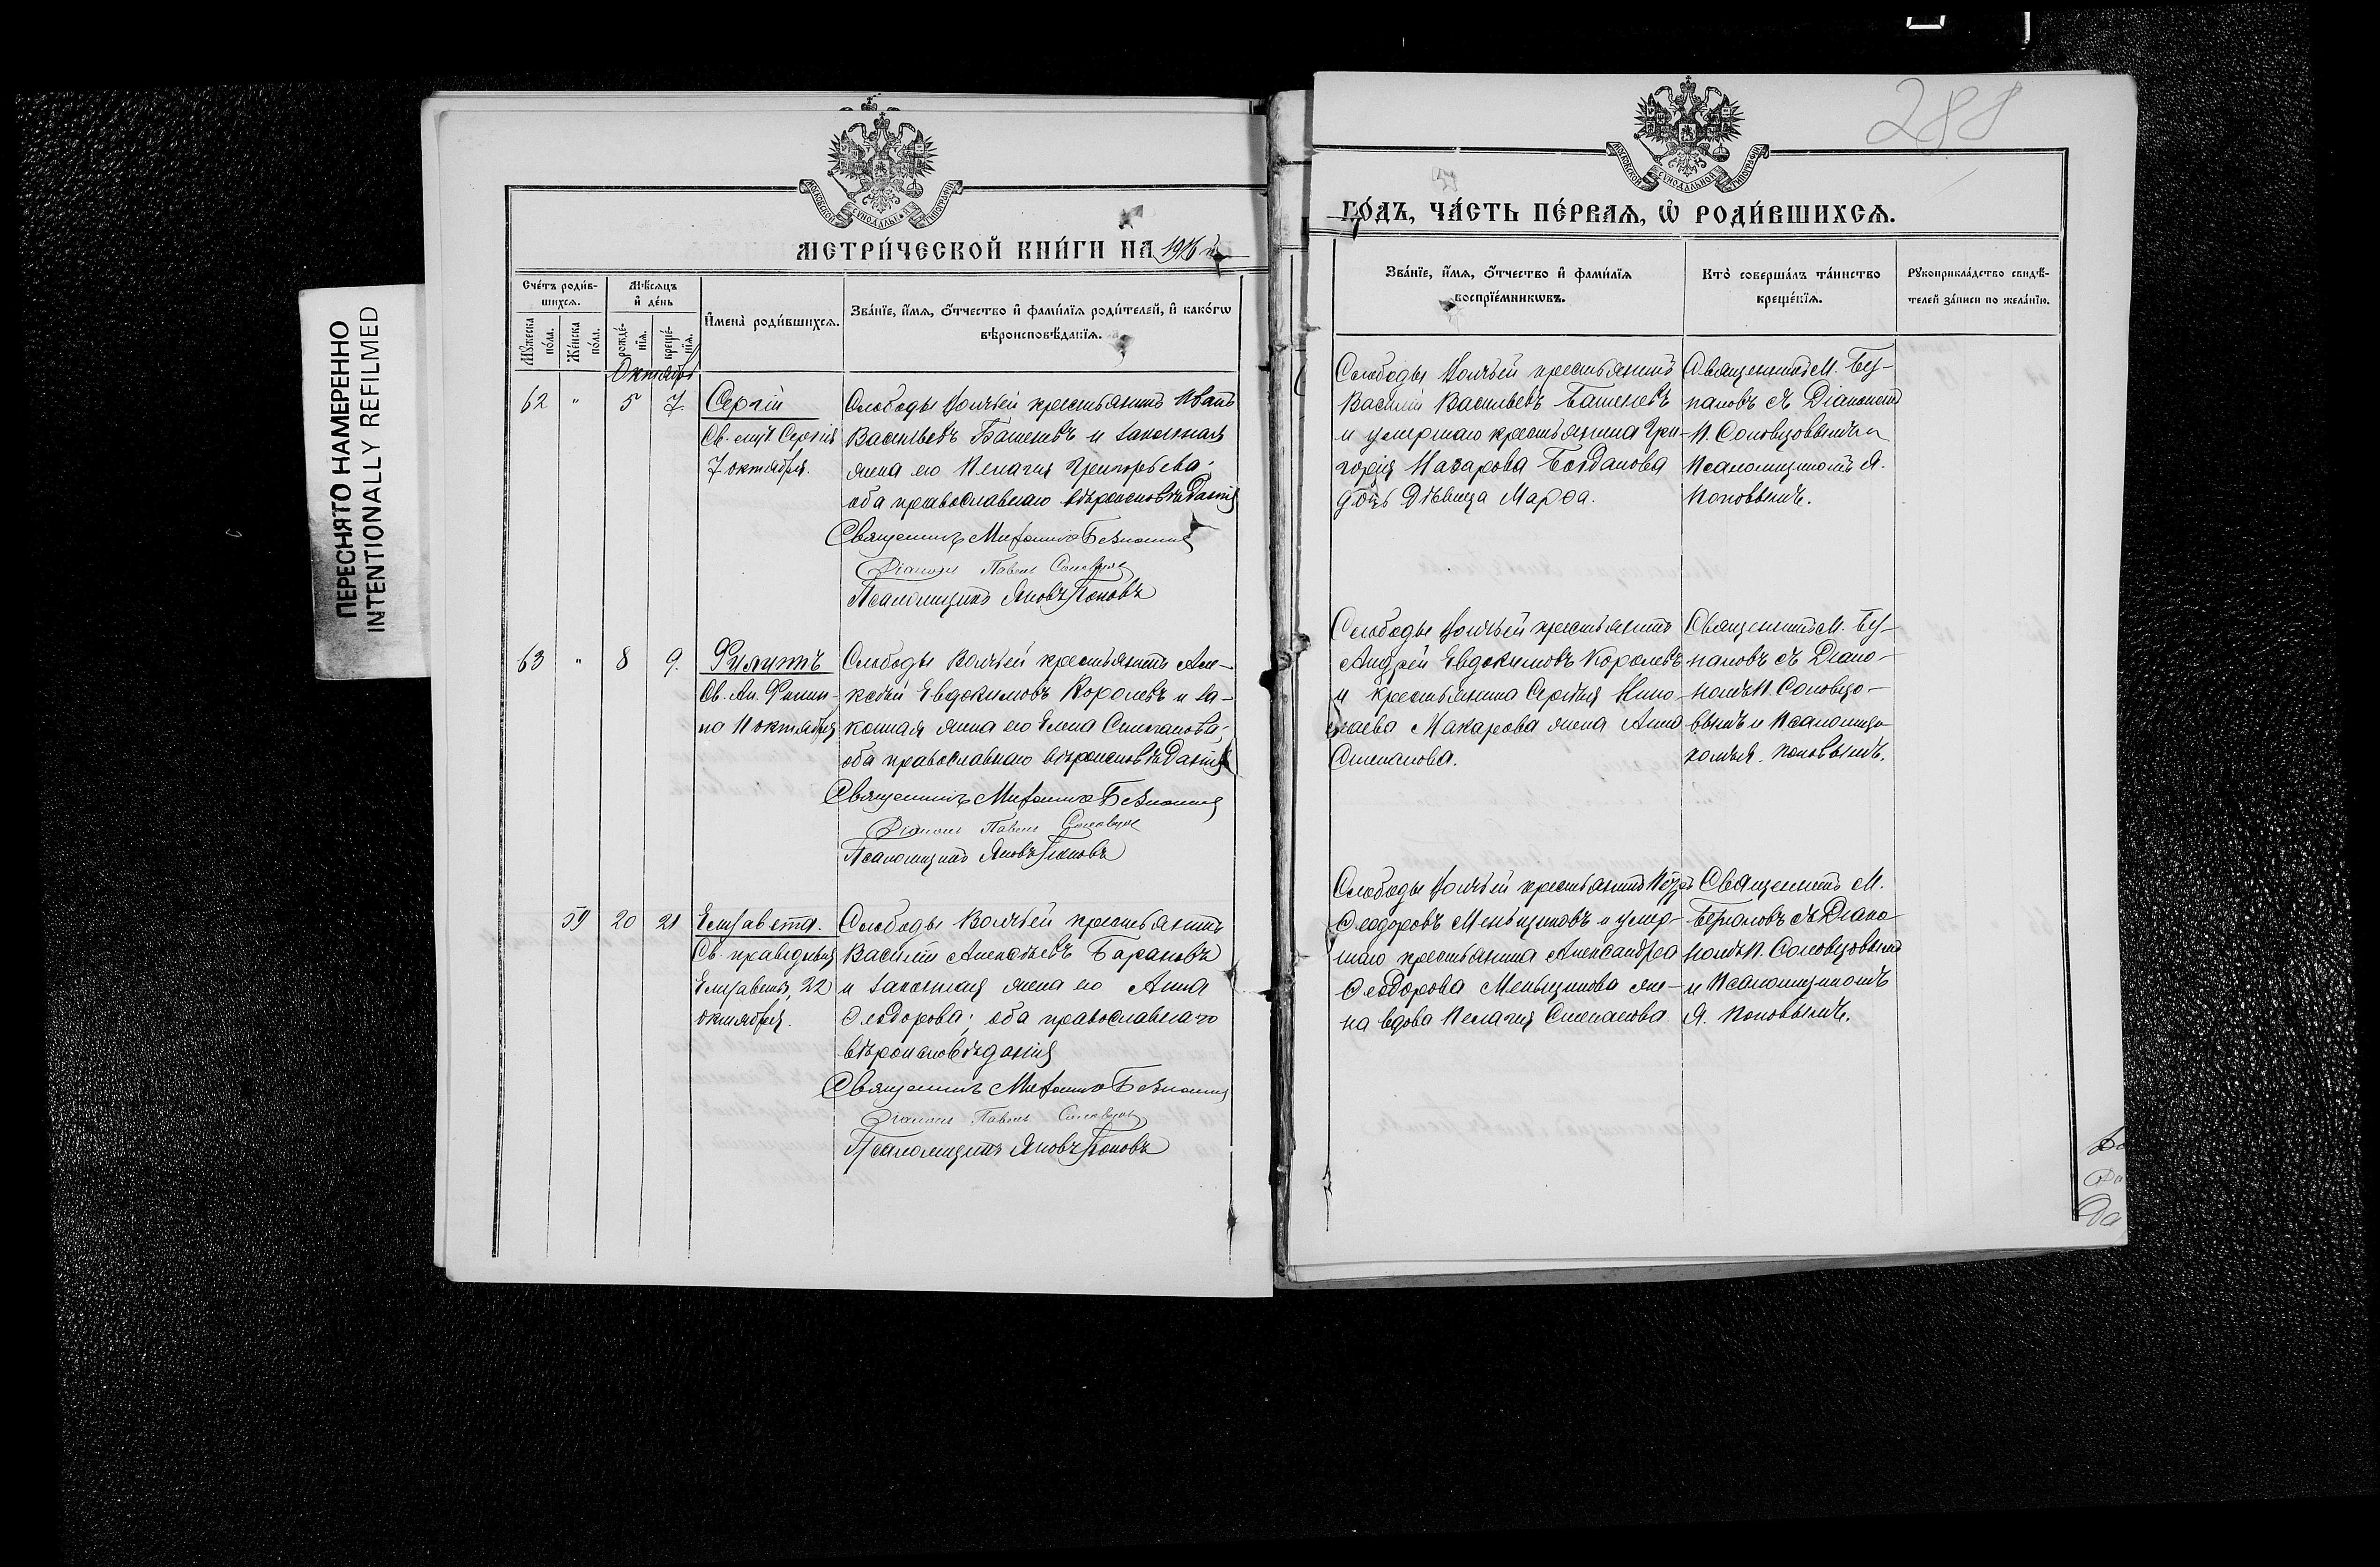 ПЕРЕСНЯТО НАМЕРЕННО
INTENTIONALLY REFILMED
МОСКОВСКОЙ СѴНОДАЛЬНОЙ ТИПОГРАФІИ
МЕТРИ́ЧЕСКОЙ КНИ́ГИ НА 1916 й
Сче́тъ роди́в-
шихсѧ.
Мѣ́сѧцъ
и҆ де́нь
Мꙋ́жеска
по́ла.
Же́нска
по́ла.
рожде́-
нїѧ.
креще́-
нїѧ.
И҆мена̀ роди́вшихсѧ.
Зва́нїе, и҆́мѧ, ѻ҆́тчество и҆ фами́лїѧ роди́телей, и҆ како́гѡ
вѣроисповѣ́данїѧ.
Октябрь
62 " 5 7. Сергій
Св. муч Сергія
7 октября.
Слободы Волчьей крестьянинъ Иванъ
Васильевъ Башевъ и законная
жена его Пелагія Григорьева;
оба православнаго вѣроисповѣданія
Священникъ Митрофанъ
Діаконъ Павелъ
Псаломщикъ Яковъ Поповъ
63 " 8 9. Филиппъ
Св. Ап. Филип-
па 11 октября
Слободы Волчьей крестьянинъ Але-
ксѣй Евдокимовъ Королевъ и за-
конная жена его Елена Степанова;
оба православнаго вѣроисповѣданія
Священникъ Митрофанъ
Діаконъ Павелъ
Псаломщикъ Яковъ Поповъ
59 20 21 Елизавета.
Св. праведныя
Елизаветы, 22
октября.
Слободы Волчьей крестьянинъ
Василій Алексѣевъ Барановъ
и законная жена его Анна
Ѳеодорова; оба православнаго
вѣроисповѣданія
Священникъ Митрофанъ
Діаконъ Павелъ
Псаломщикъ Яковъ Поповъ
288
МОСКОВСКОЙ СѴНОДАЛЬНОЙ ТИПОГРАФІИ
ГО́ДЪ, ЧА́СТЬ ПЕ́РВАѦ, Ѡ҆ РОДИ́ВШИХСѦ.
Зва́нїе, и҆́мѧ, ѻ҆́тчество и҆ фами́лїѧ
воспрїе́мникѡвъ.
Кто̀ соверша́лъ та́инство
креще́нїѧ.
Рꙋкоприкла́дство свидѣ́-
телей за́писи по жела́нїю.
Слободы Волчьей крестьянинъ
Василій Васильевъ Башевъ
и умершаго крестьянина Гри-
горія Назарова Богданова
дочь дѣвица Марѳа.
Священникъ М. Без-
нановъ съ Діакономъ
П. Соловцовымъ и
Псаломщикомъ Я.
Поповымъ.
Слободы Волчьей крестьянинъ
Андрей Евдокимовъ Королевъ
и крестьянина Сергѣя Нико-
лаева Макарова жена Анна
Степанова.
Священникъ М. Без-
нановъ съ Діако-
номъ П. Соловцо-
вымъ и Псаломщи-
комъ Я. Поповымъ.
Слободы Волчьей крестьянинъ Петръ
Ѳеодоровъ Меньщиковъ и умер-
шаго крестьянина Александра
Ѳеодорова Меньщикова же-
на вдова Пелагія Степанова.
Священникъ М.
Безнановъ съ Діако-
номъ П. Соловцовымъ
и Псаломщикомъ
Я. Поповымъ.